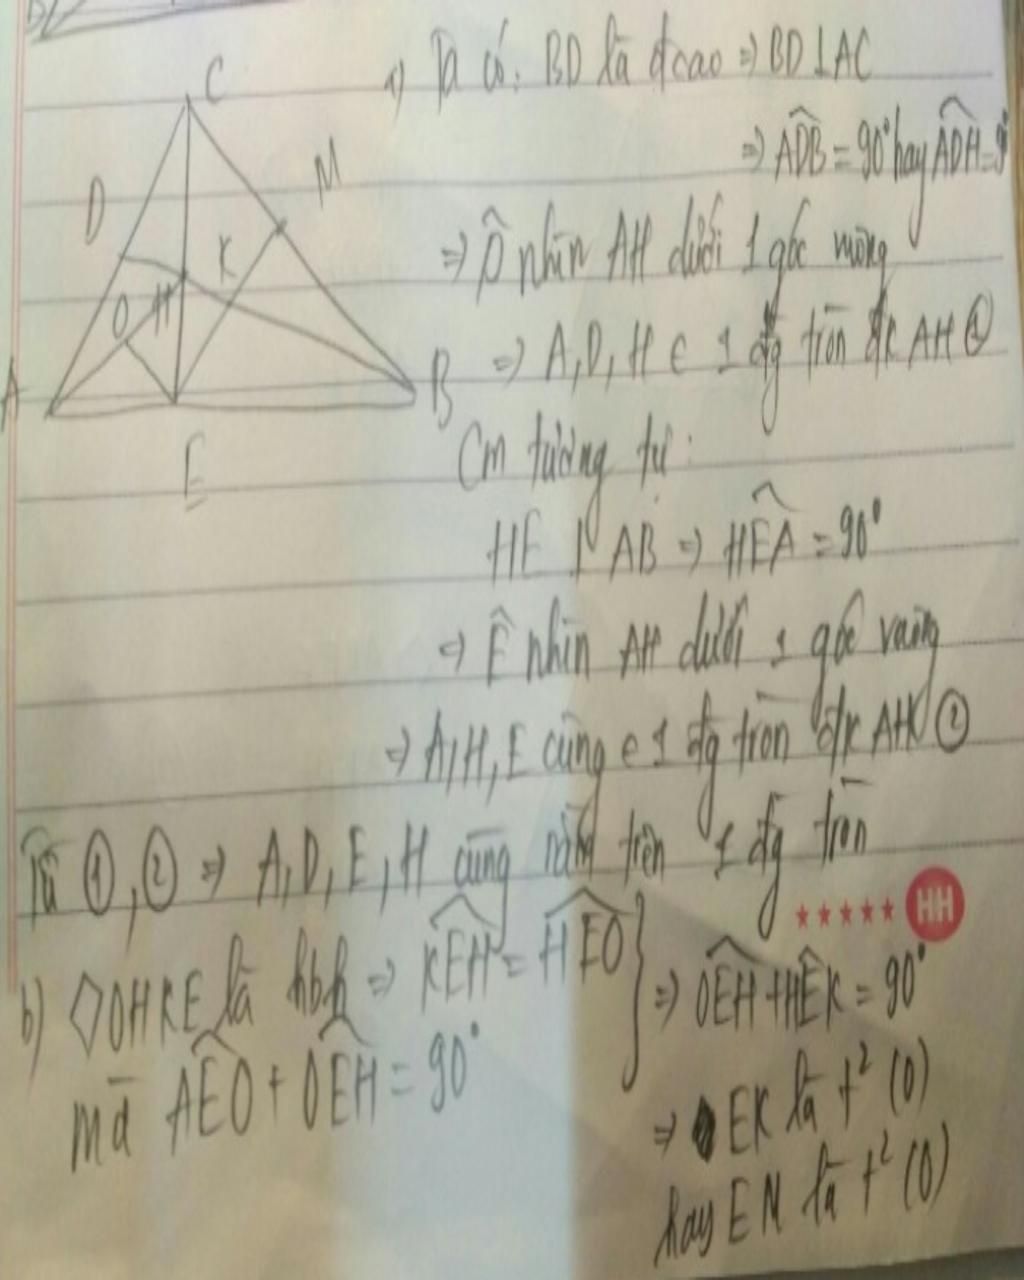 C
D
M
K
O
H
A
B
E
a) Ta có: BD là đcao => BD ⊥ AC
=> ADB = 90° hay ADH = 9
=> D nhìn AH dưới 1 góc vuông
=> A, D, H ∈ 1 đg tròn đk AH ①
Cm tương tự:
HE ⊥ AB => HEA = 90°
=> E nhìn AH dưới 1 góc vuông
=> A, H, E cùng ∈ 1 đg tròn đk AH ②
Từ ①, ② => A, D, E, H cùng nằm trên 1 đg tròn
HH
b) ◇OHKE là hbh => KEH = HEO } => OEH + HEK = 90°
mà AEO + OEH = 90°
=> EK là t² (O)
hay EM là t² (O)